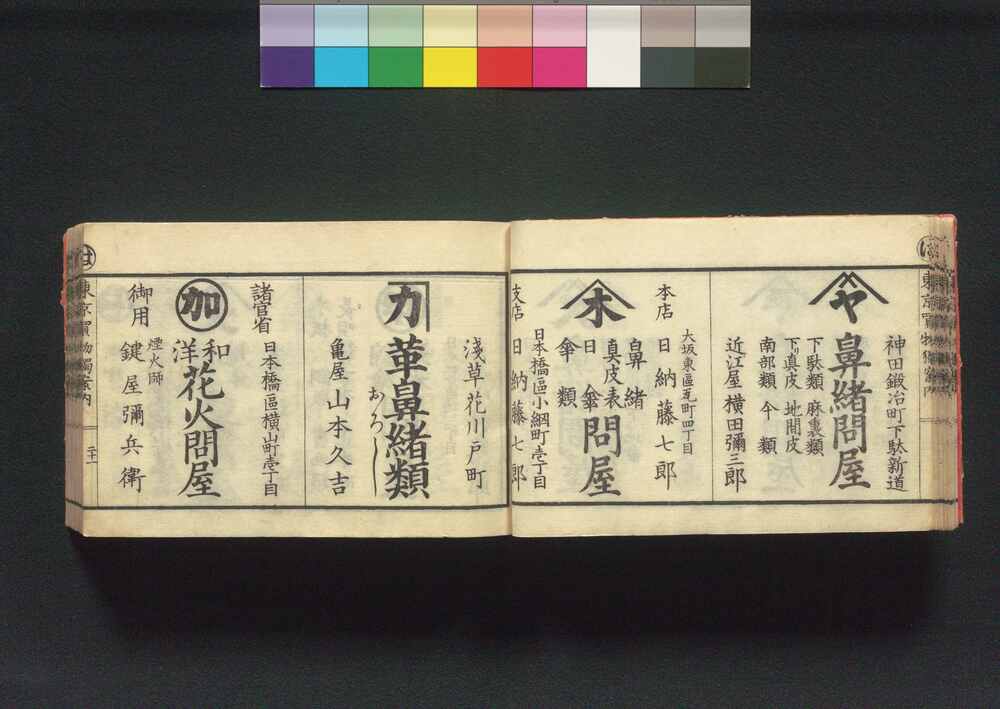 神田鍛冶町下駄新道
ヤ
鼻緒問屋
下駄類 麻裏類
下真皮 地間皮
南部類 今類
近江屋 横田彌三郎
大坂東區瓦町四丁目
本店 日納藤七郎
木
鼻緒
真皮表
日傘
傘類
問屋
日本橋區小網町壱丁目
支店 日納藤七郎
淺草花川戸町
カ
革鼻緒類
おろし
亀屋 山本久吉
諸官省 日本橋區横山町壱丁目
加
和洋花火問屋
煙火師
御用 鍵屋彌兵衛
は
東京買物獨案内